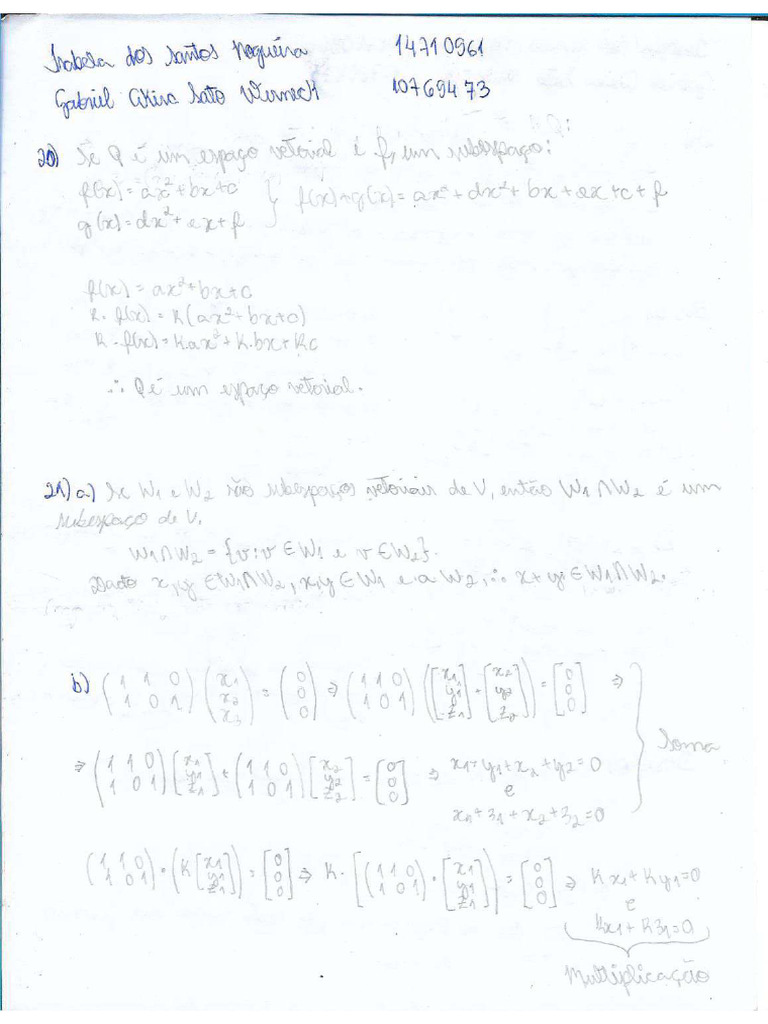 Isabela dos Santos Nogueira 14710961
Gabriel Akira Sato Werneck 10769473
20) Se P é um espaço vetorial é P, um subespaço:
f(x) = ax² + bx + c } f(x) + g(x) = ax² + dx² + bx + ex + c + f
g(x) = dx² + ex + f
f(x) = ax² + bx + c
K. f(x) = K(ax² + bx + c)
K. f(x) = K.ax² + K.bx + Kc
∴ P é um espaço vetorial.
21) a) Se W1 e W2 são subespaços vetoriais de V, então W1 ∩ W2 é um
subespaço de V.
W1 ∩ W2 = {v : v ∈ W1 e v ∈ W2}.
Dado x, y ∈ W1 ∩ W2, x, y ∈ W1 e a W2, ∴ x + y ∈ W1 ∩ W2.
b) (1 1 0; 1 0 1) (x1; x2; x3) = (0; 0; 0) ⇒ (1 1 0; 1 0 1) ([x1; y1; z1] + [x2; y2; z2]) = [0; 0; 0] ⇒
⇒ (1 1 0; 1 0 1) [x1; y1; z1] + (1 1 0; 1 0 1) [x2; y2; z2] = [0; 0; 0] ⇒ x1 + y1 + x2 + y2 = 0 e x1 + z1 + x2 + z2 = 0 } Soma
(1 1 0; 1 0 1) . (K [x1; y1; z1]) = [0; 0; 0] ⇒ K . [(1 1 0; 1 0 1) . [x1; y1; z1]] = [0; 0; 0] ⇒ Kx1 + Ky1 = 0
e
Kx1 + Kz1 = 0
Multiplicação